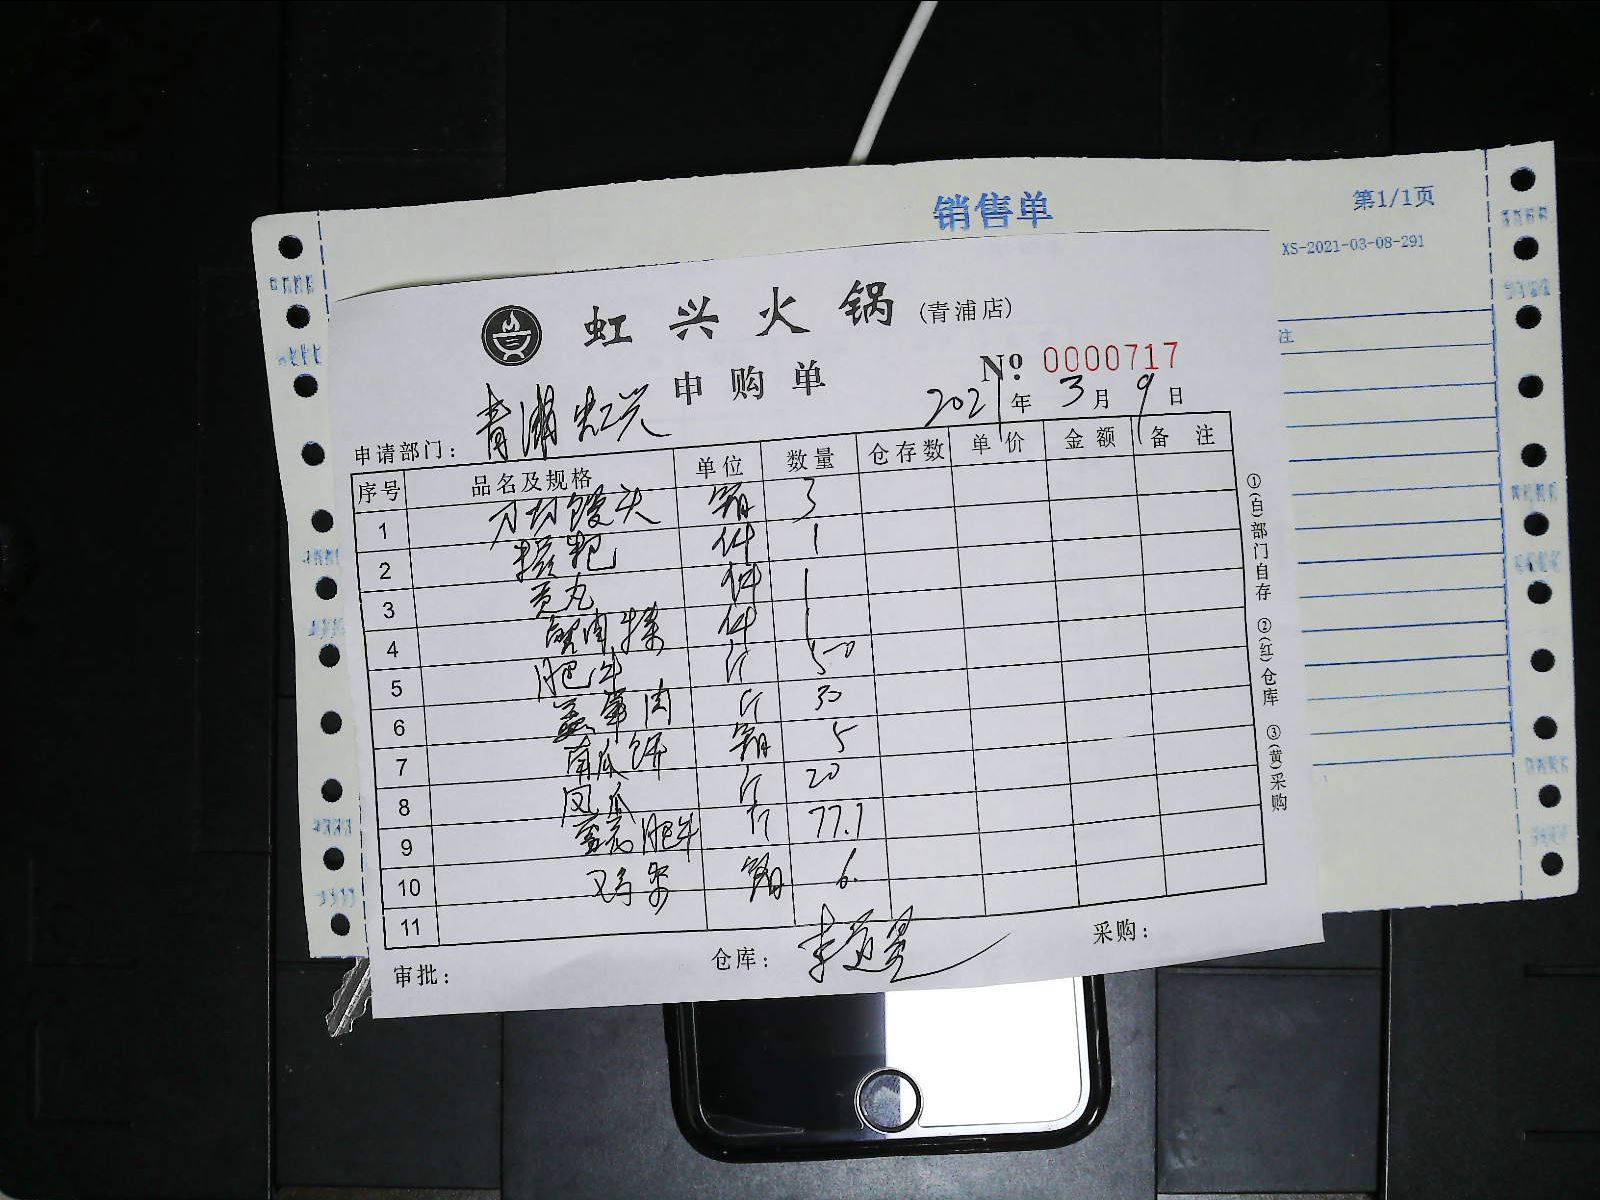 销售单
第1/1页
XS-2021-03-08-291
注
虹兴火锅(青浦店)
申购单
№ 0000717
2021年3月9日
申请部门: 青浦虹兴
序号 品名及规格 单位 数量 仓存数 单价 金额 备注
1 刀切馒头 箱 3
2 糍粑 件 1
3 贡丸 件 1
4 蟹肉棒 件 1
5 肥牛 斤 50
6 羔羊肉 斤 30
7 南瓜饼 箱 5
8 凤爪 斤 20
9 肥牛 斤 77.1
10 鸡 箱 6.
11
审批:
仓库: 李
采购:
①(白)部门自存 ②(红)仓库 ③(黄)采购